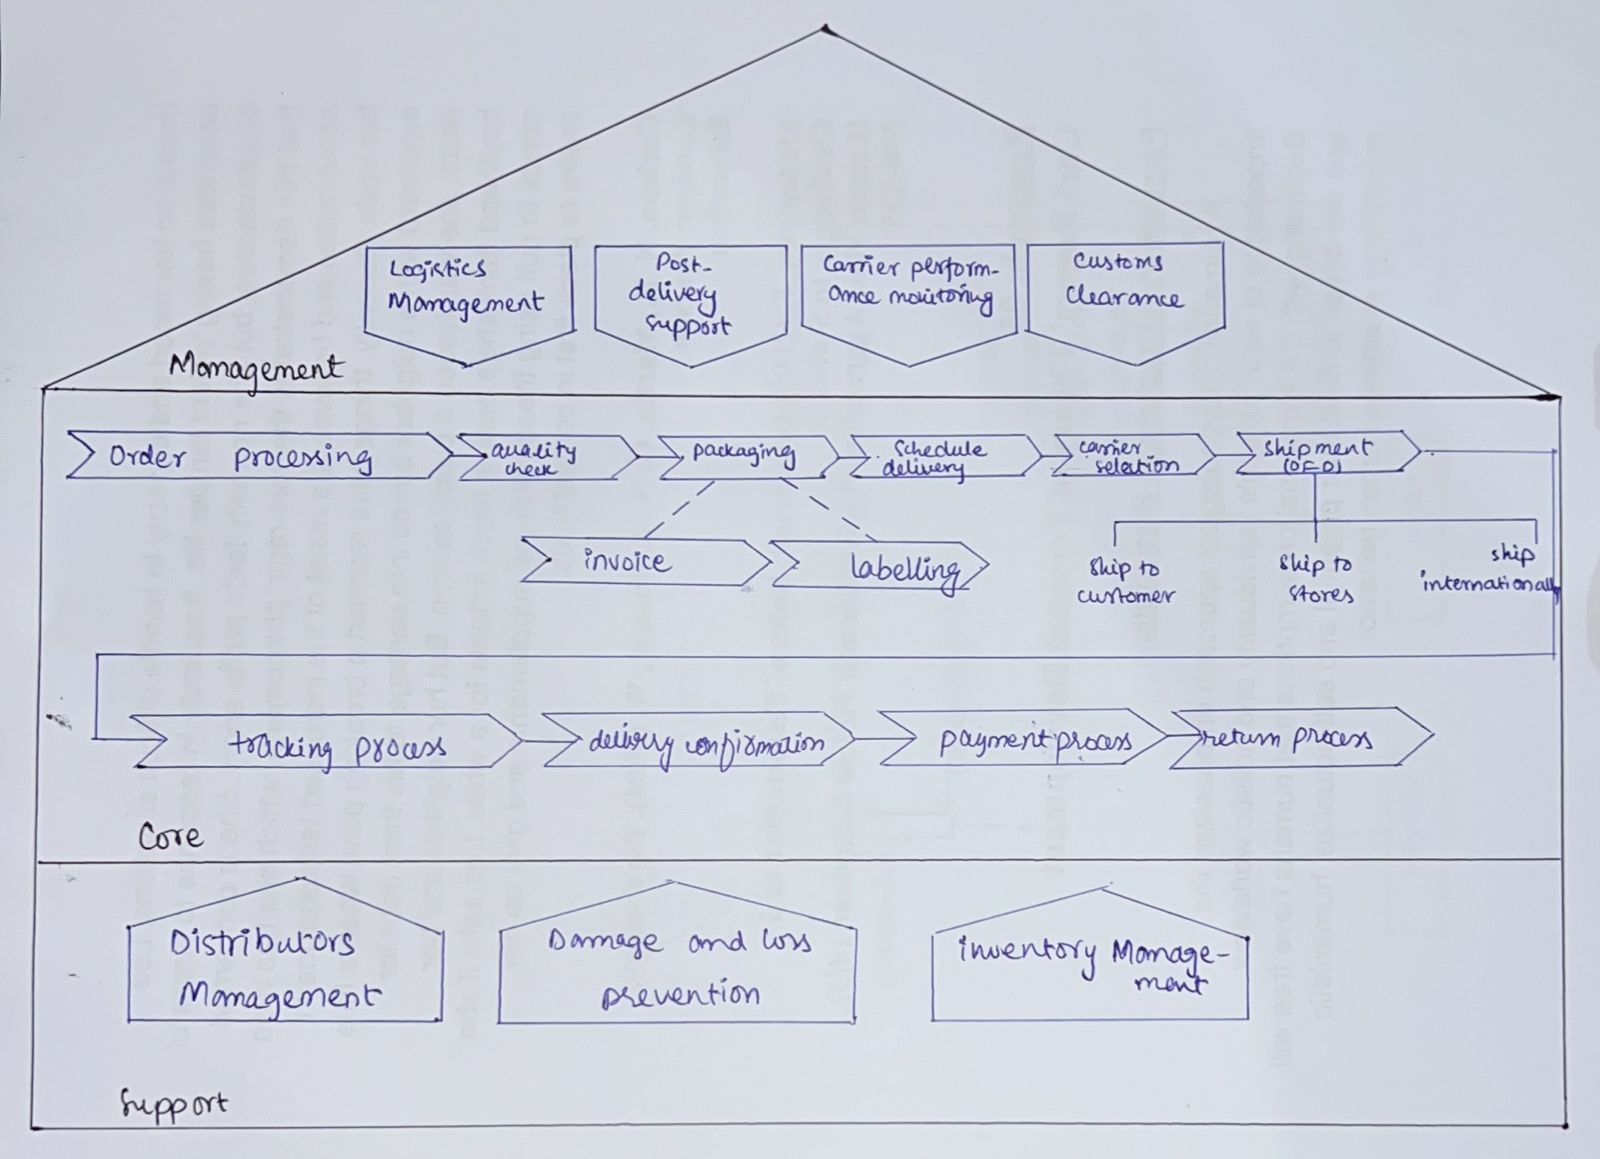 Logistics
Management
Post-
delivery
support
Carrier perform-
ance monitoring
Customs
clearance
Management
Order processing
quality
check
packaging
Schedule
delivery
carrier
selection
shipment
(OFD)
invoice
labelling
ship to
customer
ship to
stores
ship
internationally
tracking process
delivery confirmation
payment process
return process
Core
Distributors
Management
Damage and loss
prevention
inventory Manage-
ment
Support